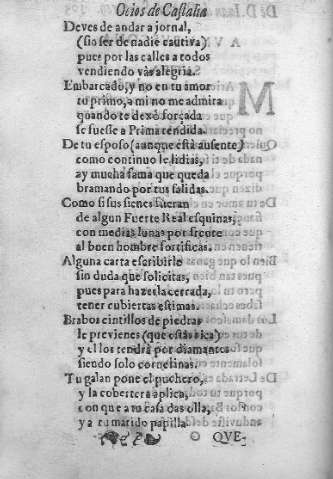 Ocios de Castalia
Deves de andar a jornal,
(sin ser de nadie cautiva)
pues por las calles a todos
vendiendo vàs alegria.
Embarcado, y no en tu amor
tu primo, a mi no me admira
quando te dexò forçada
se fuesse a Prima tendida.
De tu esposo (aunque està ausente)
como continuo le lidias,
ay mucha fama que queda
bramando por tus salidas.
Como si sus sienes fueran
de algun Fuerte Real esquinas,
con medias lunas por frente
al buen hombre fortificas.
Alguna carta escribirle
sin duda que solicitas,
pues para hazerla cerrada,
tener cubiertas estimas.
Brabos cintillos de piedras
le previenes (que estàs rica)
y el los tendrà por diamantes
siendo solo cornerinas.
Tu galan pone el puchero,
y la cobertera aplica,
con que a tu casa das olla,
y a tu marido papilla.
O QUE-